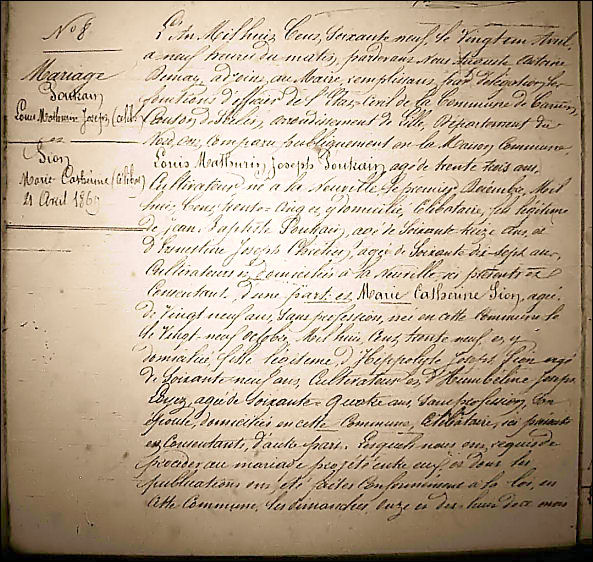 N° 8
Mariage
Pouhain
Louis Mathurin Joseph (Célib.
et
Sion
Marie Catherine (Célibat
21 Avril 1869
L'An Mil huit Cent Soixante neuf, le vingt un Avril,
à neuf heures du matin, pardevant Nous Auguste Antoine
adjoint au Maire, remplissant, par délégation, les
fonctions d'officier de l'Etat-Civil de la Commune de
Canton de arrondissement de Lille, Département du
Nord, ont Comparu publiquement en la Maison Commune,
Louis Mathurin Joseph Pouhain, agé de trente trois ans,
Cultivateur né à la Neuville le premier Décembre, Mil
huit Cent trente- et y domicilié, Célibataire, fils légitime
de Jean Baptiste Pouhain, agé de Soixante treize Ans, et
d'Ernestine Joseph Chrétien, agée de Soixante dix-sept ans,
Cultivateurs domiciliés à la Neuville ici présents et
Consentant, d'une part; et Marie Catherine Sion, agée
de vingt neuf ans, Sans profession, née en cette Commune le
vingt-neuf Octobre, Mil huit Cent trente neuf, et y
domiciliée, fille légitime d'Hippolyte Joseph Sion agé
de Soixante-neuf ans, Cultivateur et d'Humbéline Joseph
agée de Soixante-Quatre ans, Sans profession, Son
épouse, domiciliés en cette Commune, Célibataire, ici présents
et Consentants, d'autre part. Lesquels nous ont requis de
procéder au mariage projeté entre eux, et dont les
publications ont été faites Conformément à la loi, en
cette Commune, les dimanches onze et dix-huit de ce mois